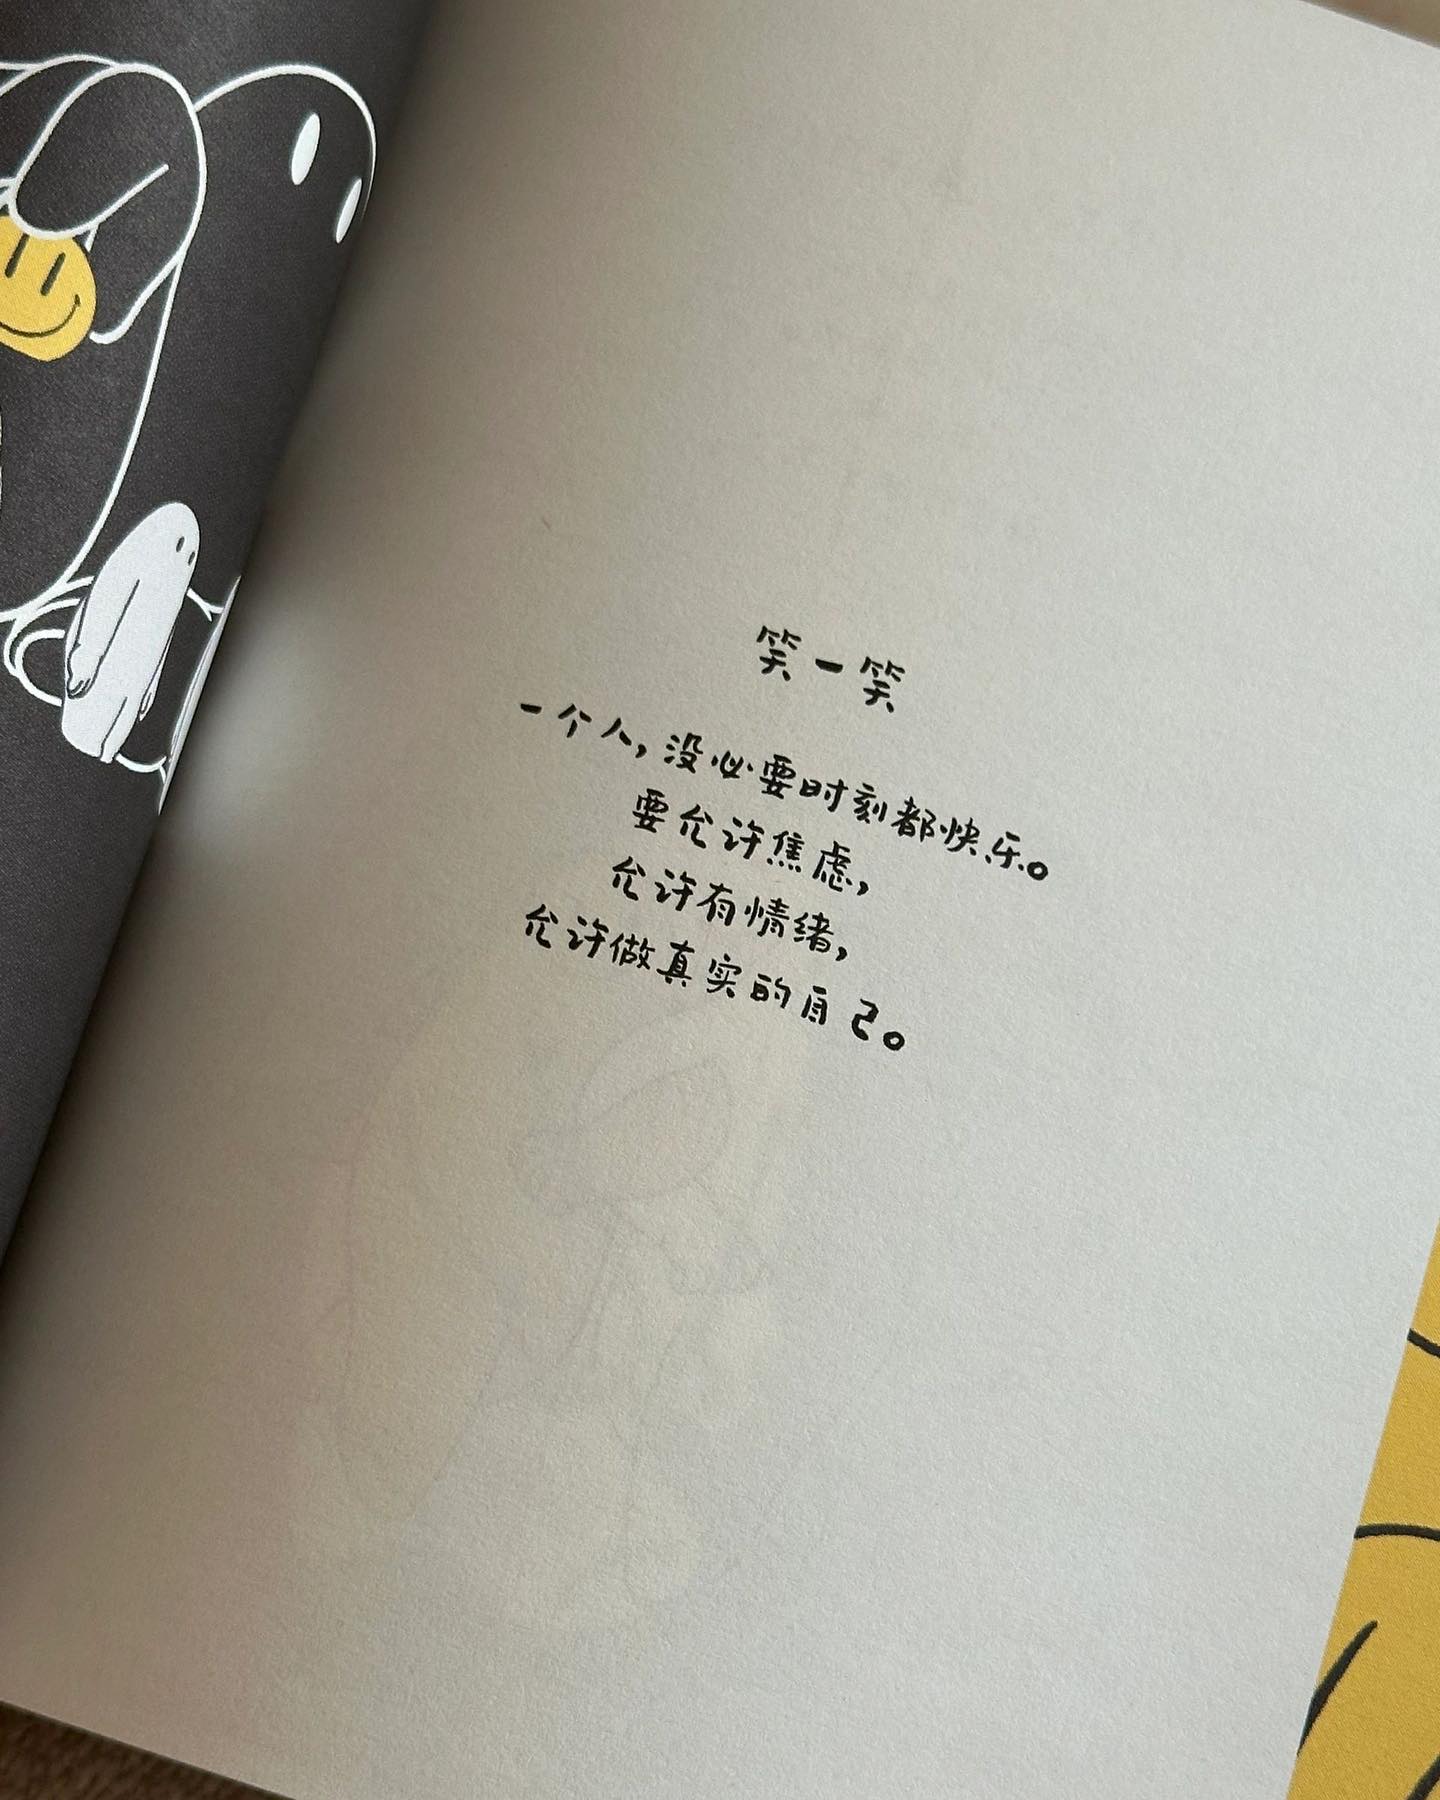 笑一笑
一个人，没必要时刻都快乐。
要允许焦虑，
允许有情绪，
允许做真实的自己。